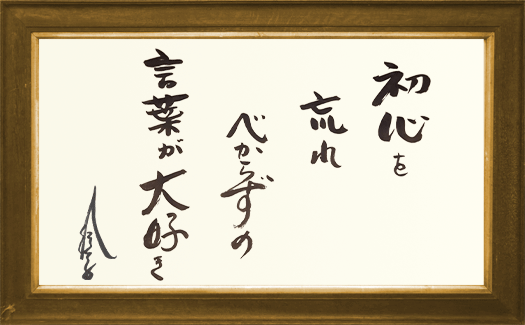 初心を
忘れ
べからずの
言葉が大好き